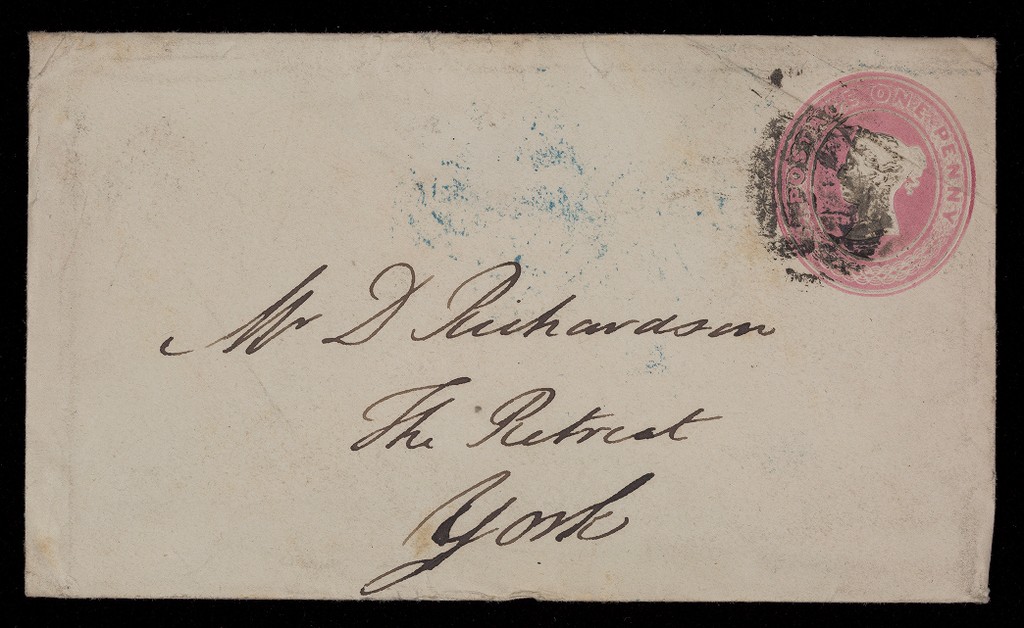 POSTAGE ONE PENNY
Mr D Richardson
The Retreat
York